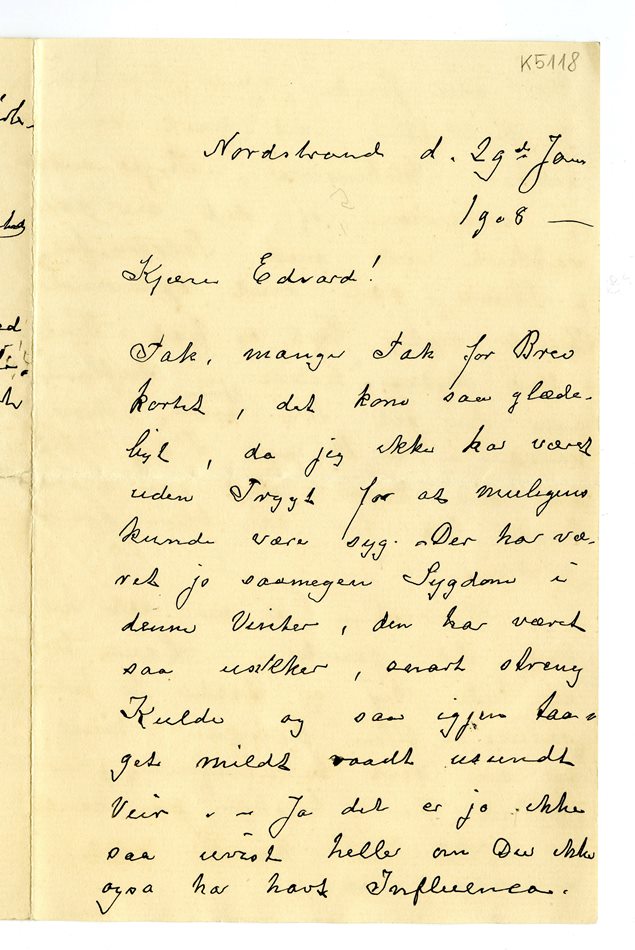 K5118
Nordstrand d. 29de Jan
1908 —
Kjære Edvard!
Tak, mange Tak for Brev
kortet, det kom saa glæde-
ligt, da jeg ikke har været
uden Frygt for at muligens
kunde være syg. – Der har væ-
ret jo saamegen Sygdom i
denne Vinter, den har været
saa usikker, snart streng
Kulde og saa igjen taa-
get mildt raadt usundt
Veir. – Ja det er jo ikke
saa uvist heller om Du ikke
ogsa har havt Influenca.